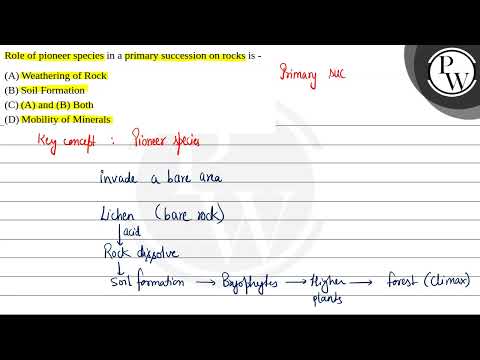 Role of pioneer species in a primary succession on rocks is -
(A) Weathering of Rock
(B) Soil Formation
(C) (A) and (B) Both
(D) Mobility of Minerals
Primary suc
Key concept : Pioneer species
invade a bare area
Lichen (bare rock)
↓ acid
Rock dissolve
↓
Soil formation → Bryophytes → Higher plants → forest (Climax)
P
W